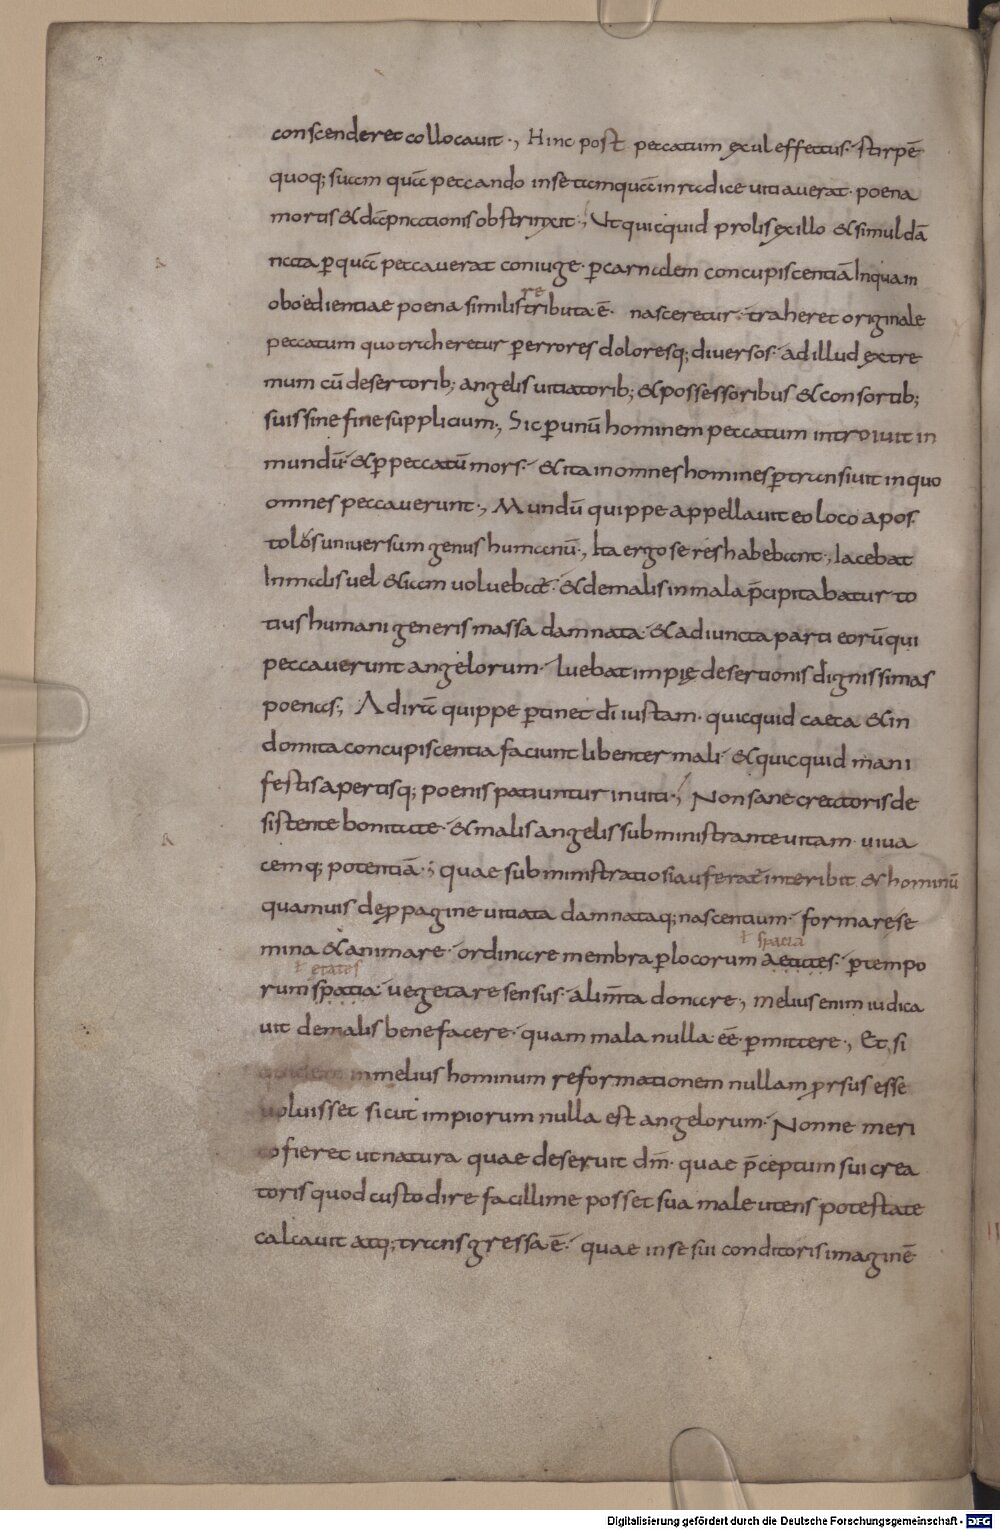 conscenderet collocavit·, Hinc post peccatum exul effectus· stirpē
quoq; suam quā peccando in se tamquā in radice vitiaverat· poena
mortis & dāpnationis obstrinxit·, Ut quicquid prolis ex illo & simul dā
nata ꝑ quā peccaverat coniuge· ꝑ carnalem concupiscentiā In quam
re
oboedientiae poena similis tributa ē· nasceretur· traheret originale
peccatum quo traheretur ꝑ errores doloresq; diversos· ad illud extre
mum cū desertorib; angelis vitiatorib; & possessoribus & consortib;
suis sine fine supplicium·, Sic ꝑ unū hominem peccatum introivit in
mundū· & ꝑ peccatū mors· & ita in omnes homines ꝑtransivit in quo
omnes peccaverunt·, Mundū quippe appellavit eo loco apos
tolos universum genus humanū·, Ita ergo se res habebant·, Iacebat
In malis vel &iam voluebat̄· & de malis in mala p̄cipitabatur to
tius humani generis massa damnata· & adiuncta parti eorū qui
peccaverunt angelorum· luebat impię desertionis dignissimas
poenas; Ad irā quippe ꝑtinet dī iustam· quicquid caeca & in
domita concupiscentia faciunt libenter mali· & quicquid mani
festis apertisq; poenis patiuntur inviti·, Non sane creatoris de
sistente bonitate· & malis angelis subministrante vitam· viva
cemq; potentiā·; quae subministratio si auferat̄ interibit & hominū
quamvis de ꝓpagine vitiata damnataq; nascentium· formare se
ł spacia
mina & animare· ordinare membra ꝑ locorum aetates· ꝑ tempo
ł etates
rum spatia· vegetare sensus· alim̄ta donare·, melius enim iudica
vit de malis benefacere· quam mala nulla eē ꝑmittere·, Et si
in melius hominum reformationem nullam ꝓrsus esse
voluisset sicut impiorum nulla est angelorum· Nonne meri
to fieret ut natura quae deseruit dm̄· quae p̄ceptum sui crea
toris quod custodire facillime posset sua male utens potestate
calcavit atq; transgressa ē· quae in se sui conditoris imaginē
Digitalisierung gefördert durch die Deutsche Forschungsgemeinschaft - DFG